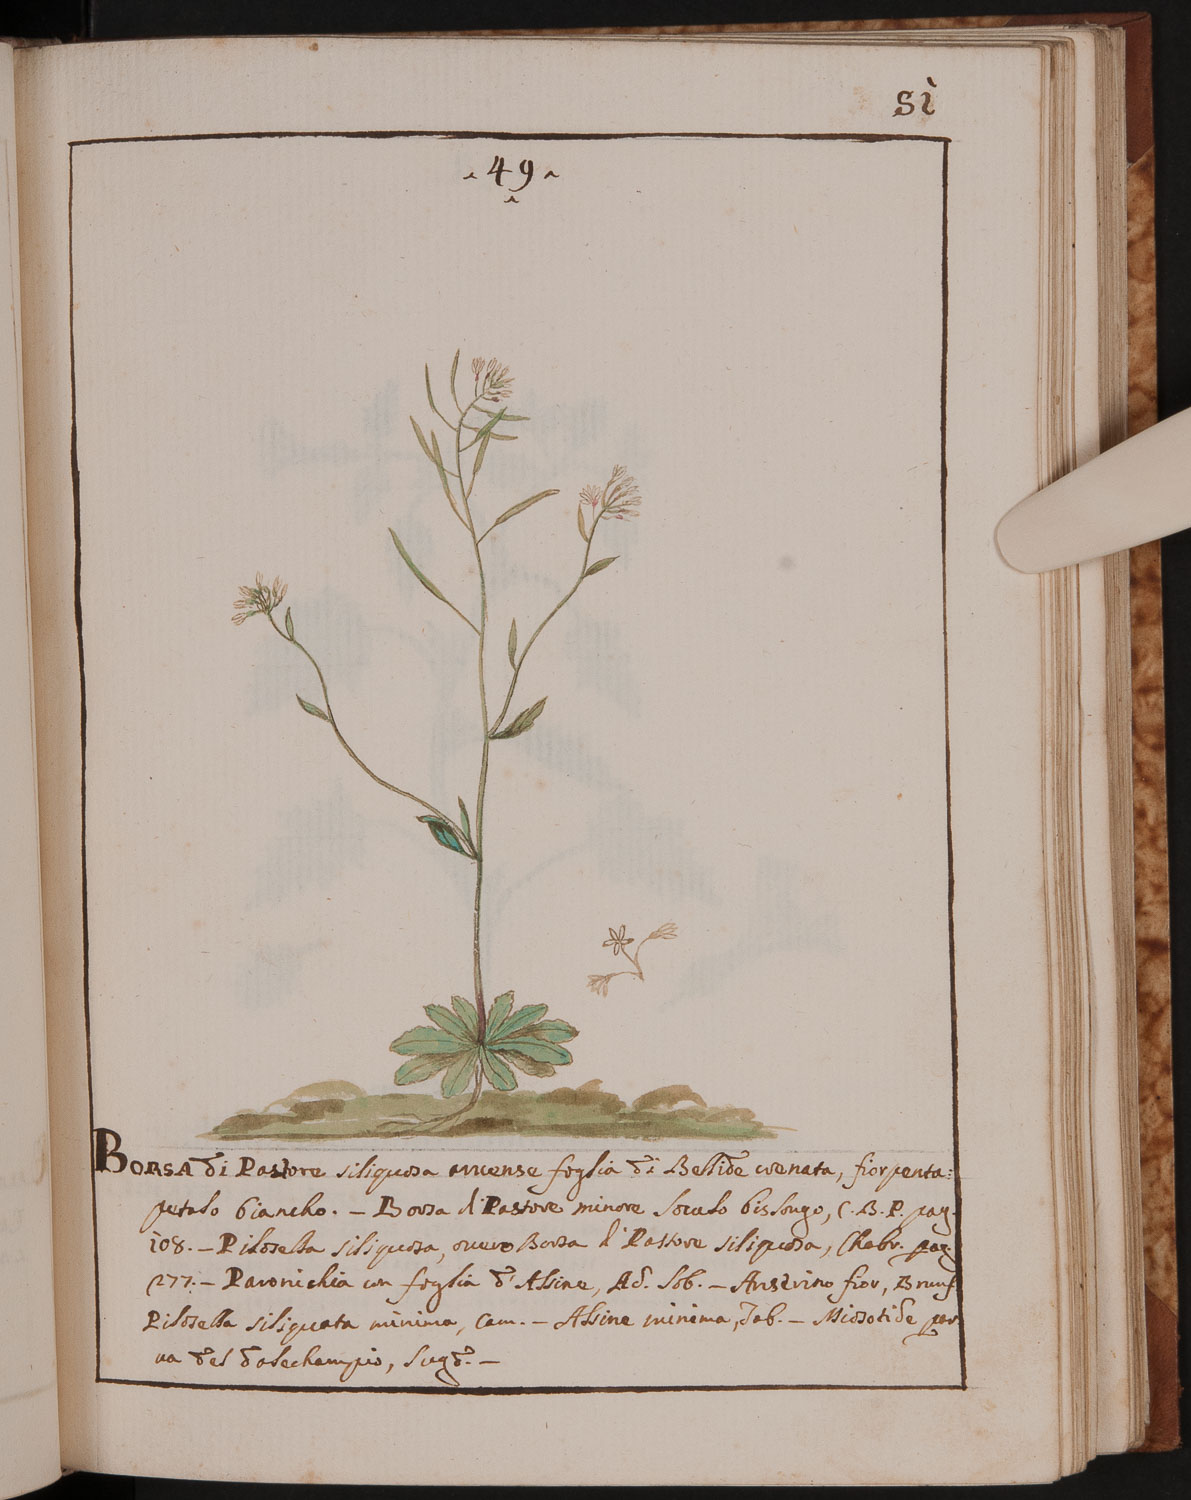 Sì
49
BORSA di Pastore siliquosa arvense foglia di Bellide crenata, fior penta=
petalo biancho. - Borsa d'Pastore minore loculo bislongo, C. B. P. pag.
108. - Pilosella siliquosa, overo Borsa d'Pastore siliquosa, Chabr. pag.
277. - Paronichia con foglia d'Alsine, Ad. Lob. - Anserino fior, Brunf
Pilosella siliquata minima, Cam. - Alsine minima, Tab. - Miosotide par
va del dalechampio, Lugd. -